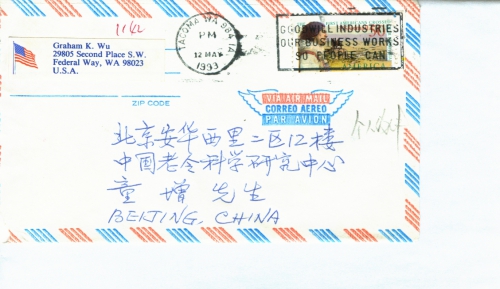 1162
Graham K. Wu
29805 Second Place S.W.
Federal Way, WA 98023
U.S.A.
TACOMA WA 984
PM
12 MAY
1993
GOODWILL INDUSTRIES
OUR BUSINESS WORKS
SO PEOPLE CAN
ZIP CODE
VIA AIR MAIL
CORREO AEREO
PAR AVION
北京安华西里二区12楼
中国老令科学研究中心
童增先生
BEIJING, CHINA